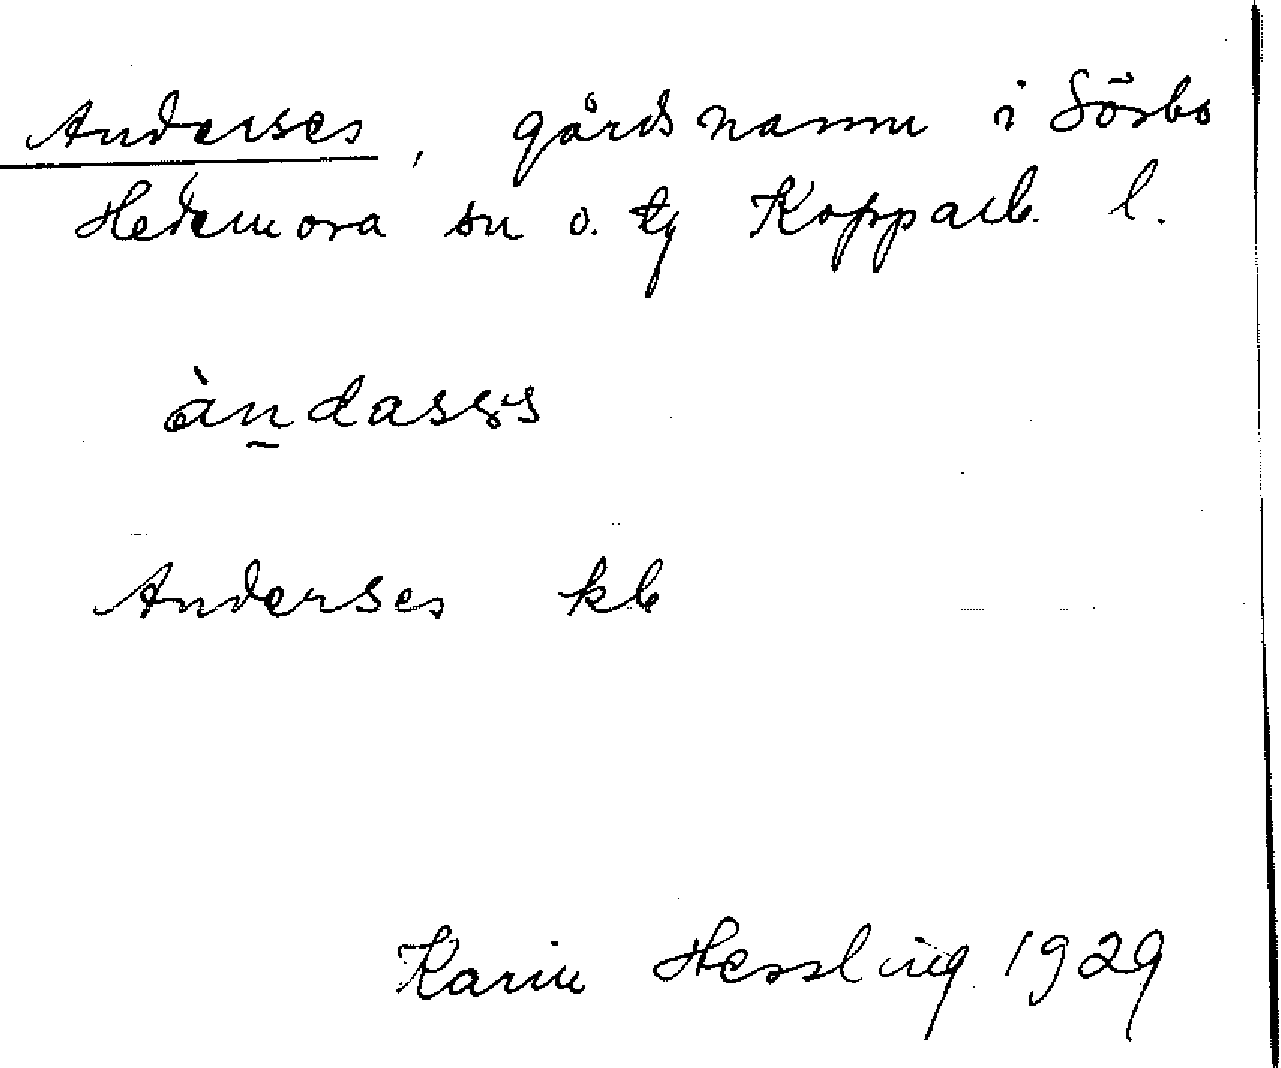 Anderses, gårdsnamn i Sörbo
Hedemora sn o. tg Kopparb. l.
àn̠dasəs
Anderses kb
Karin Hessling 1929